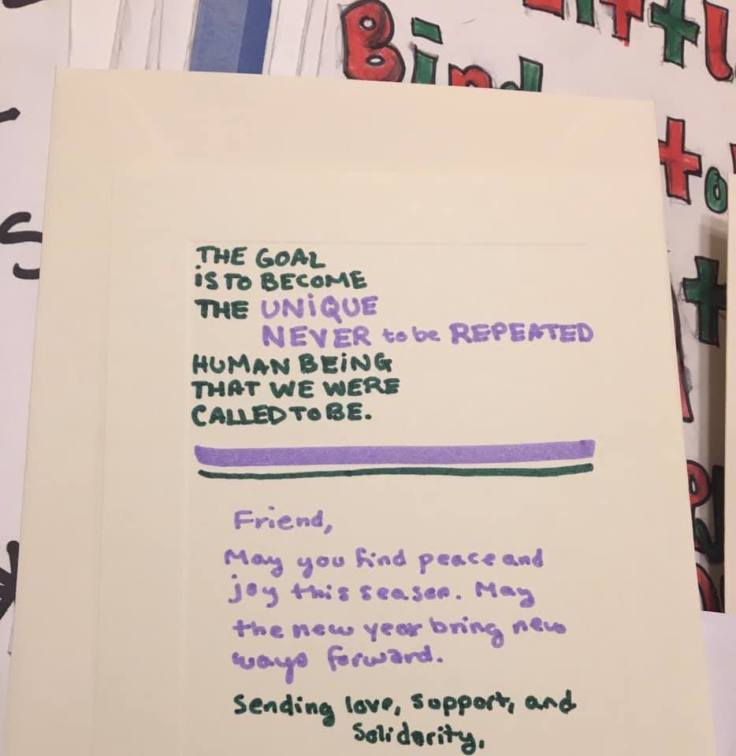 Little
Bird
to
THE GOAL
iS TO BECOME
THE UNiQUE
NEVER to be REPEATED
HUMAN BEiNG
THAT WE WERE
CALLED TO BE.
Friend,
May you find peace and
joy this season. May
the new year bring new
ways forward.
Sending love, support, and
Solidarity,